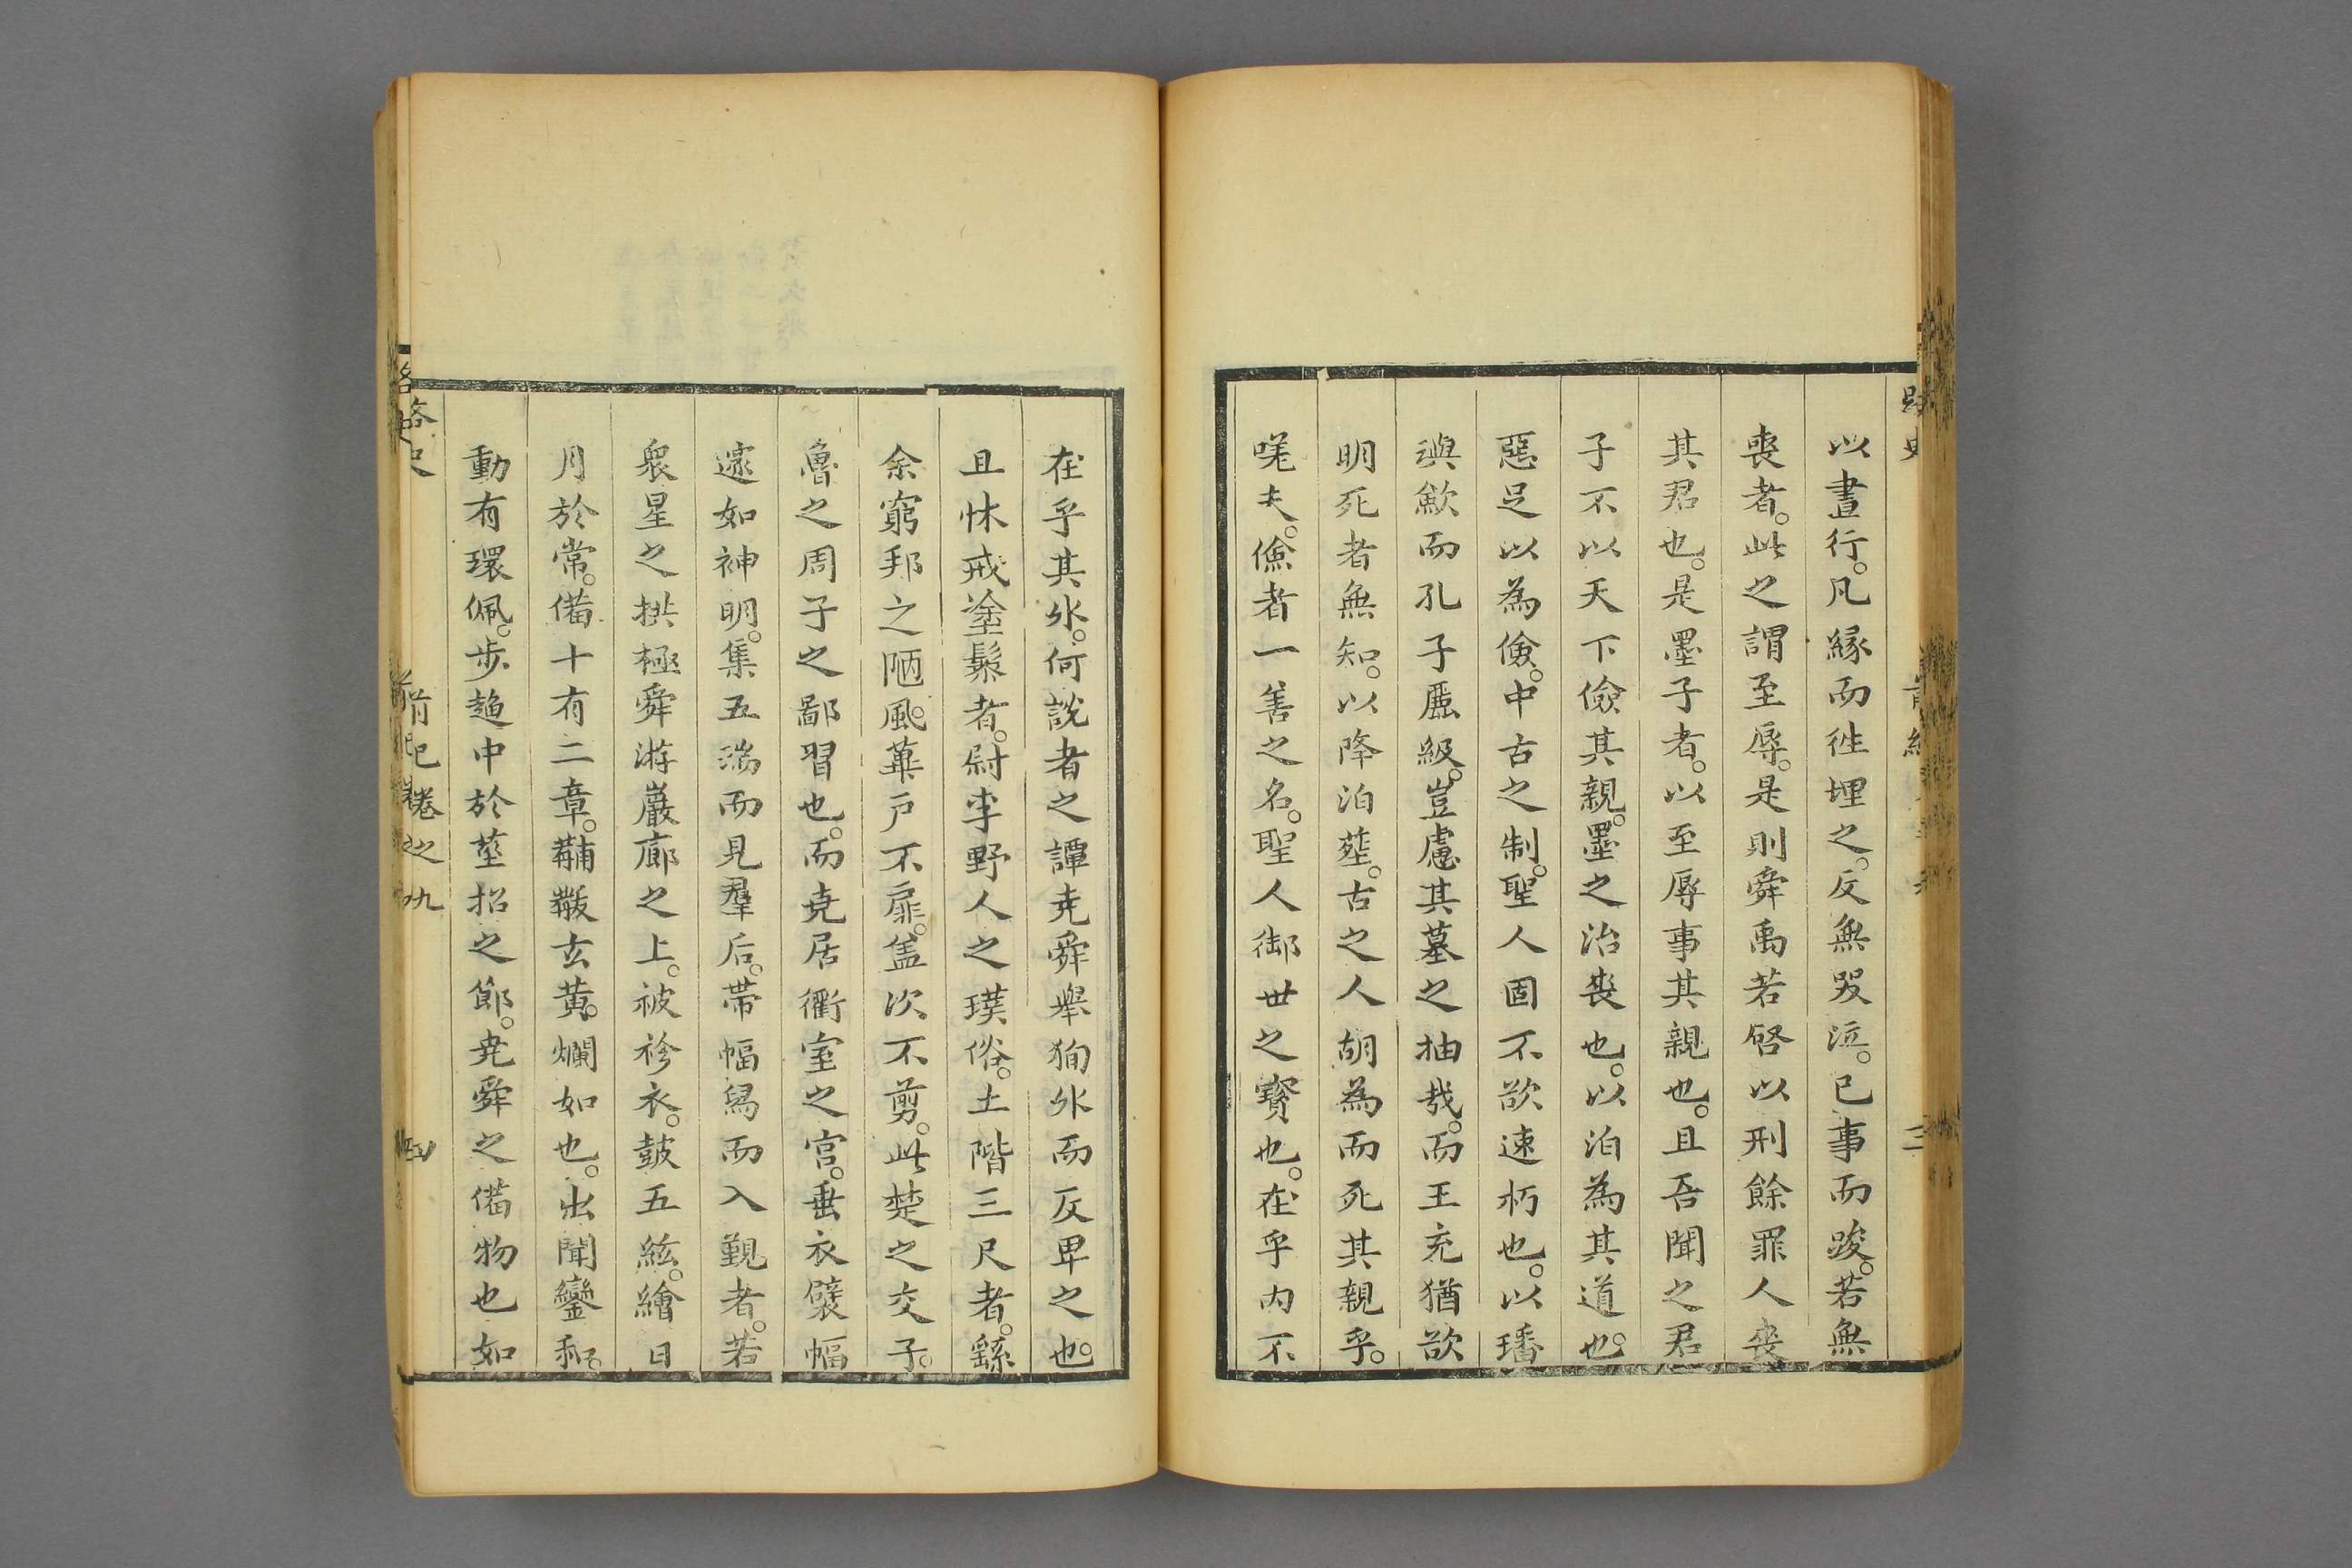 路史
以晝行。凡緣而徃埋之。反無哭泣。已事而踆。若無
喪者。此之謂至辱。是則舜禹若啓以刑餘罪人喪
其君也。是墨子者。以至辱事其親也。且吾聞之君
子不以天下儉其親。墨之治喪也。以泊為其道也。
惡足以為儉。中古之制。聖人固不欲速朽也。以璠
璵歛而孔子歷級。豈慮其墓之抽哉。而王充猶欲
明死者無知。以降泊塟。古之人胡為而死其親乎。
嗟夫。儉者一善之名。聖人御世之寳也。在乎内不
在乎其外。何說者之譚尭舜舉狥外而反卑之也。
且休戒塗髹者。尉李野人之璞俗。土階三尺者。繇
余窮邦之陋風。蓽户不扉。葢次不剪。此楚之交子。
魯之周子之鄙習也。而尭居衢室之宫。垂衣襞幅
邃如神明。集五瑞而見羣后。帶幅舃而入覲者。若
衆星之拱極舜游巖廊之上。被袗衣。鼓五絃。繪日
月於常。備十有二章。黼黻玄黄。爛如也。出聞鑾和。
動有環佩。步趨中於莖招之節。尭舜之備物也如
路史 前紀卷之九 四